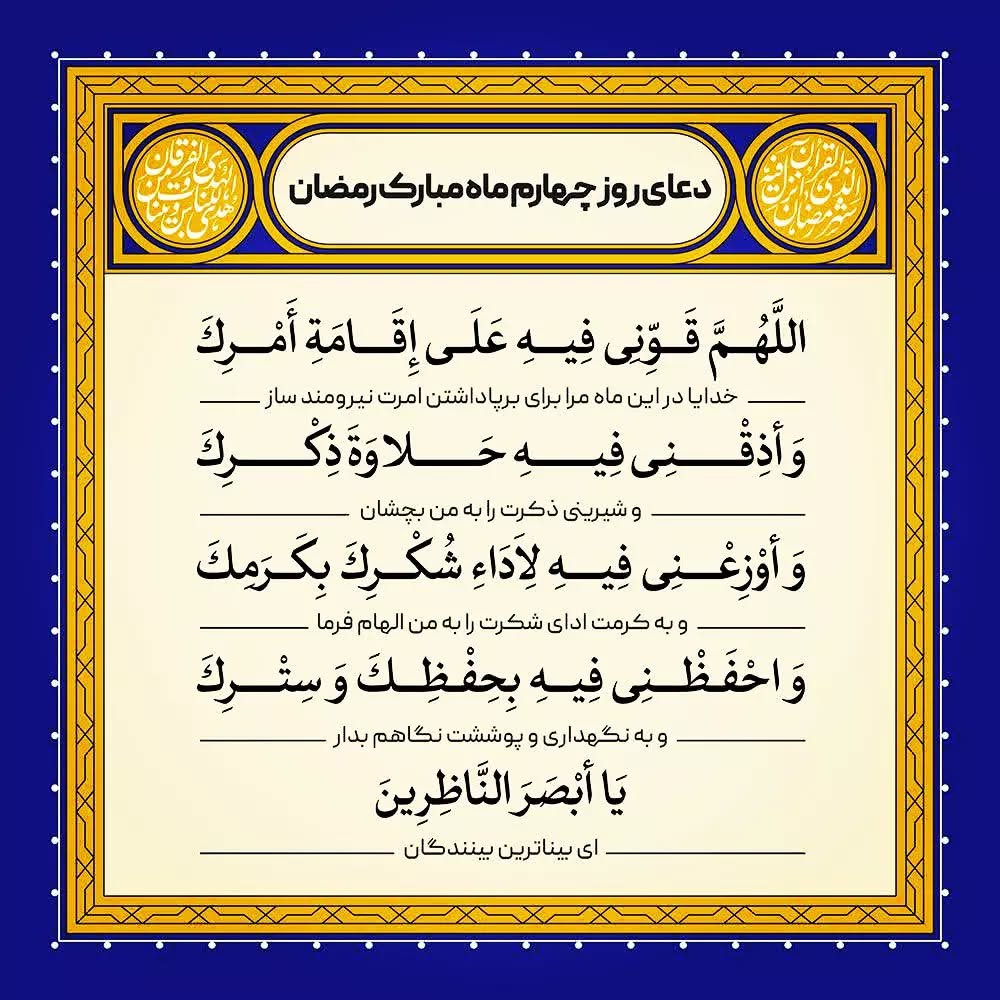 شهر رمضان الذی انزل فیه القرآن
دعای روز چهارم ماه مبارک رمضان
هدی للناس و بینات من الهدی و الفرقان
اللَّهُمَّ قَوِّنِی فِیهِ عَلَی إِقَامَةِ أَمْرِكَ
خدایا در این ماه مرا برای برپاداشتن امرت نیرومند ساز
وَ أَذِقْنِی فِیهِ حَلاوَةَ ذِكْرِكَ
و شیرینی ذکرت را به من بچشان
وَ أَوْزِعْنِی فِیهِ لِأَدَاءِ شُكْرِكَ بِكَرَمِكَ
و به کرمت ادای شکرت را به من الهام فرما
وَ احْفَظْنِی فِیهِ بِحِفْظِكَ وَ سِتْرِكَ
و به نگهداری و پوششت نگاهم بدار
یَا أَبْصَرَ النَّاظِرِینَ
ای بیناترین بینندگان